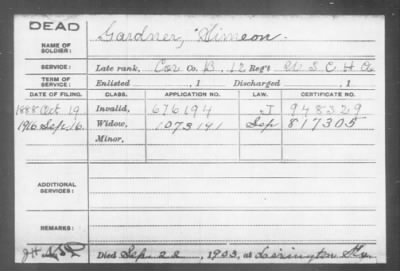 DEAD
NAME OF SOLDIER: Gardner, Simeon.
SERVICE: Late rank, Cor Co. B, 12 Reg't U.S.C.H.A.
TERM OF SERVICE: Enlisted , 1 Discharged , 1
DATE OF FILING. CLASS. APPLICATION NO. LAW. CERTIFICATE NO.
1888 Oct 19 Invalid, 676194 J 948329
1916 Sep 16. Widow, 1073141 Sep 817305
Minor,
ADDITIONAL SERVICES:
REMARKS:
Died Sep. 22, 1933, at Lexington Ky.